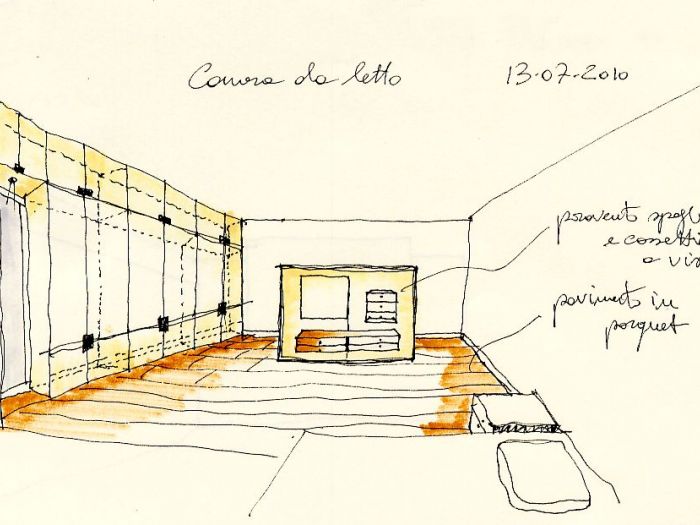 Camera da letto
13.07.2010
paravento spogl
e cassetti
a vis
pavimento in
parquet